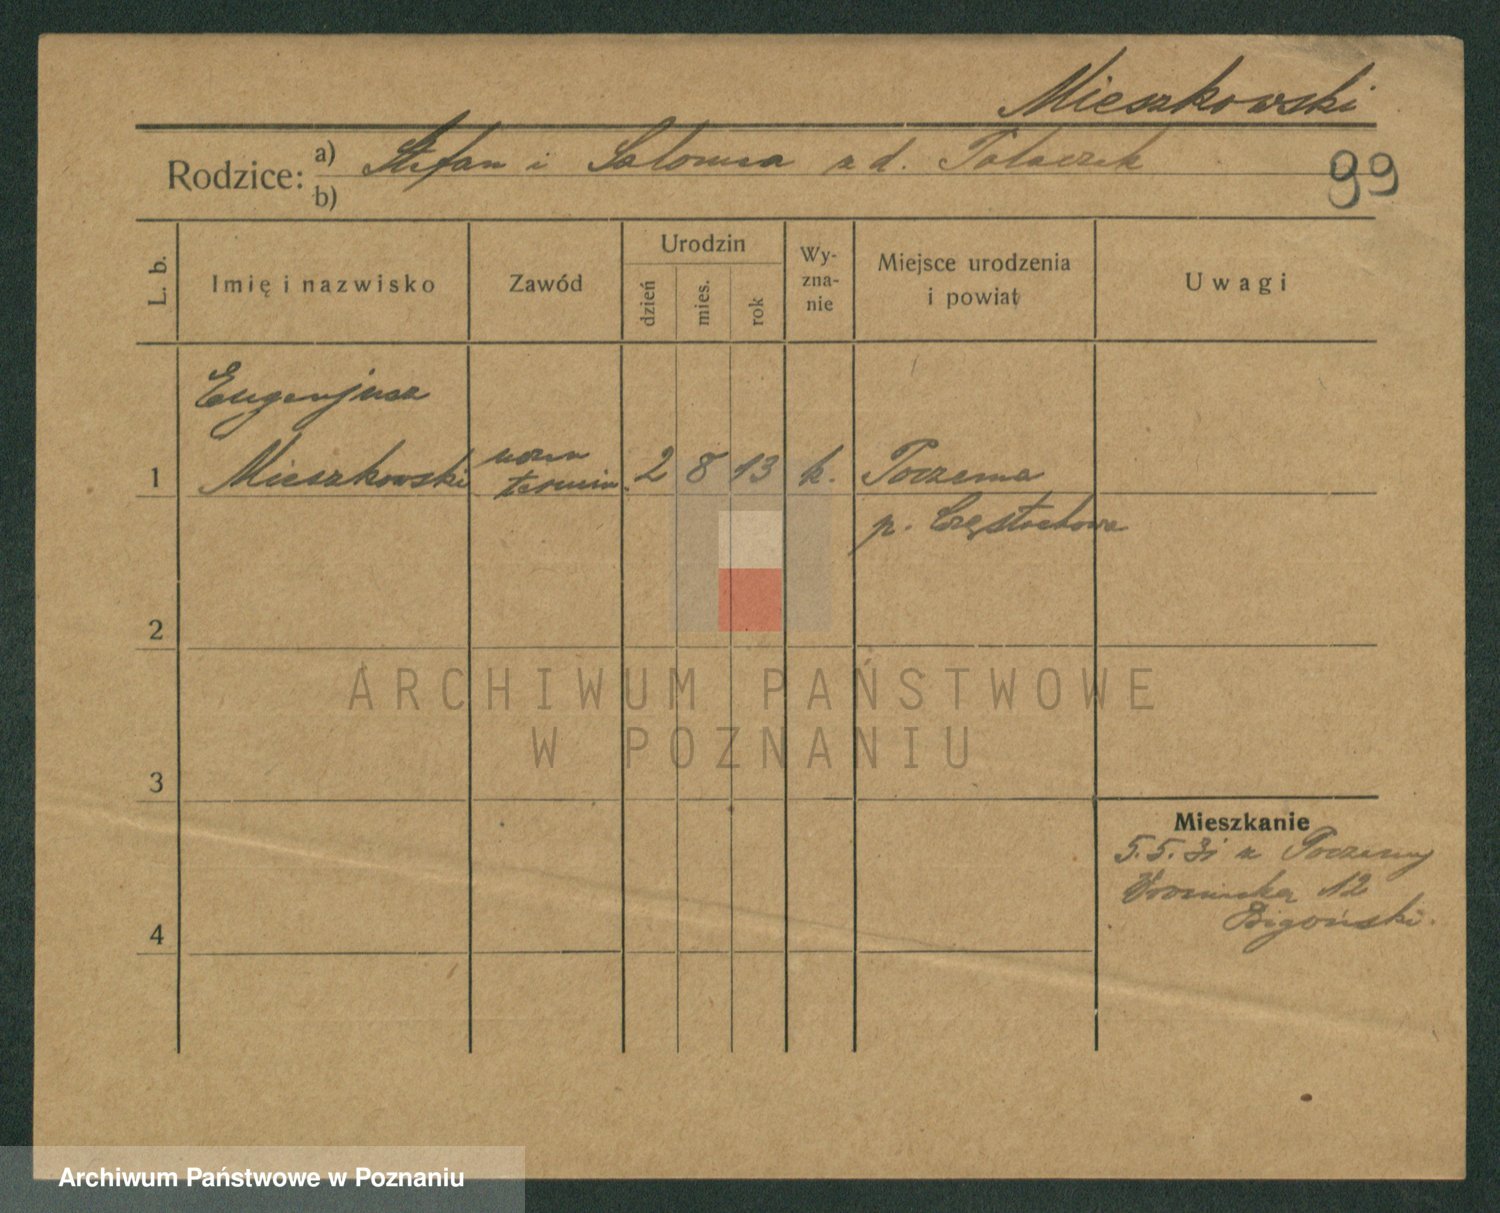 Mieszkowski
Rodzice: a) Stefan i Salomea z d. Polaczek
b)
99
L. b.
Imię i nazwisko
Zawód
Urodzin
dzień
mies.
rok
Wy-
zna-
nie
Miejsce urodzenia
i powiat
Uwagi
Eugenjusz
1 Mieszkowski termin. 2 8 13 k. Poczesna
p. Częstochowa
2
ARCHIWUM PAŃSTWOWE
W POZNANIU
3
Mieszkanie
5.5.31 z Poczesny
12
4
Archiwum Państwowe w Poznaniu